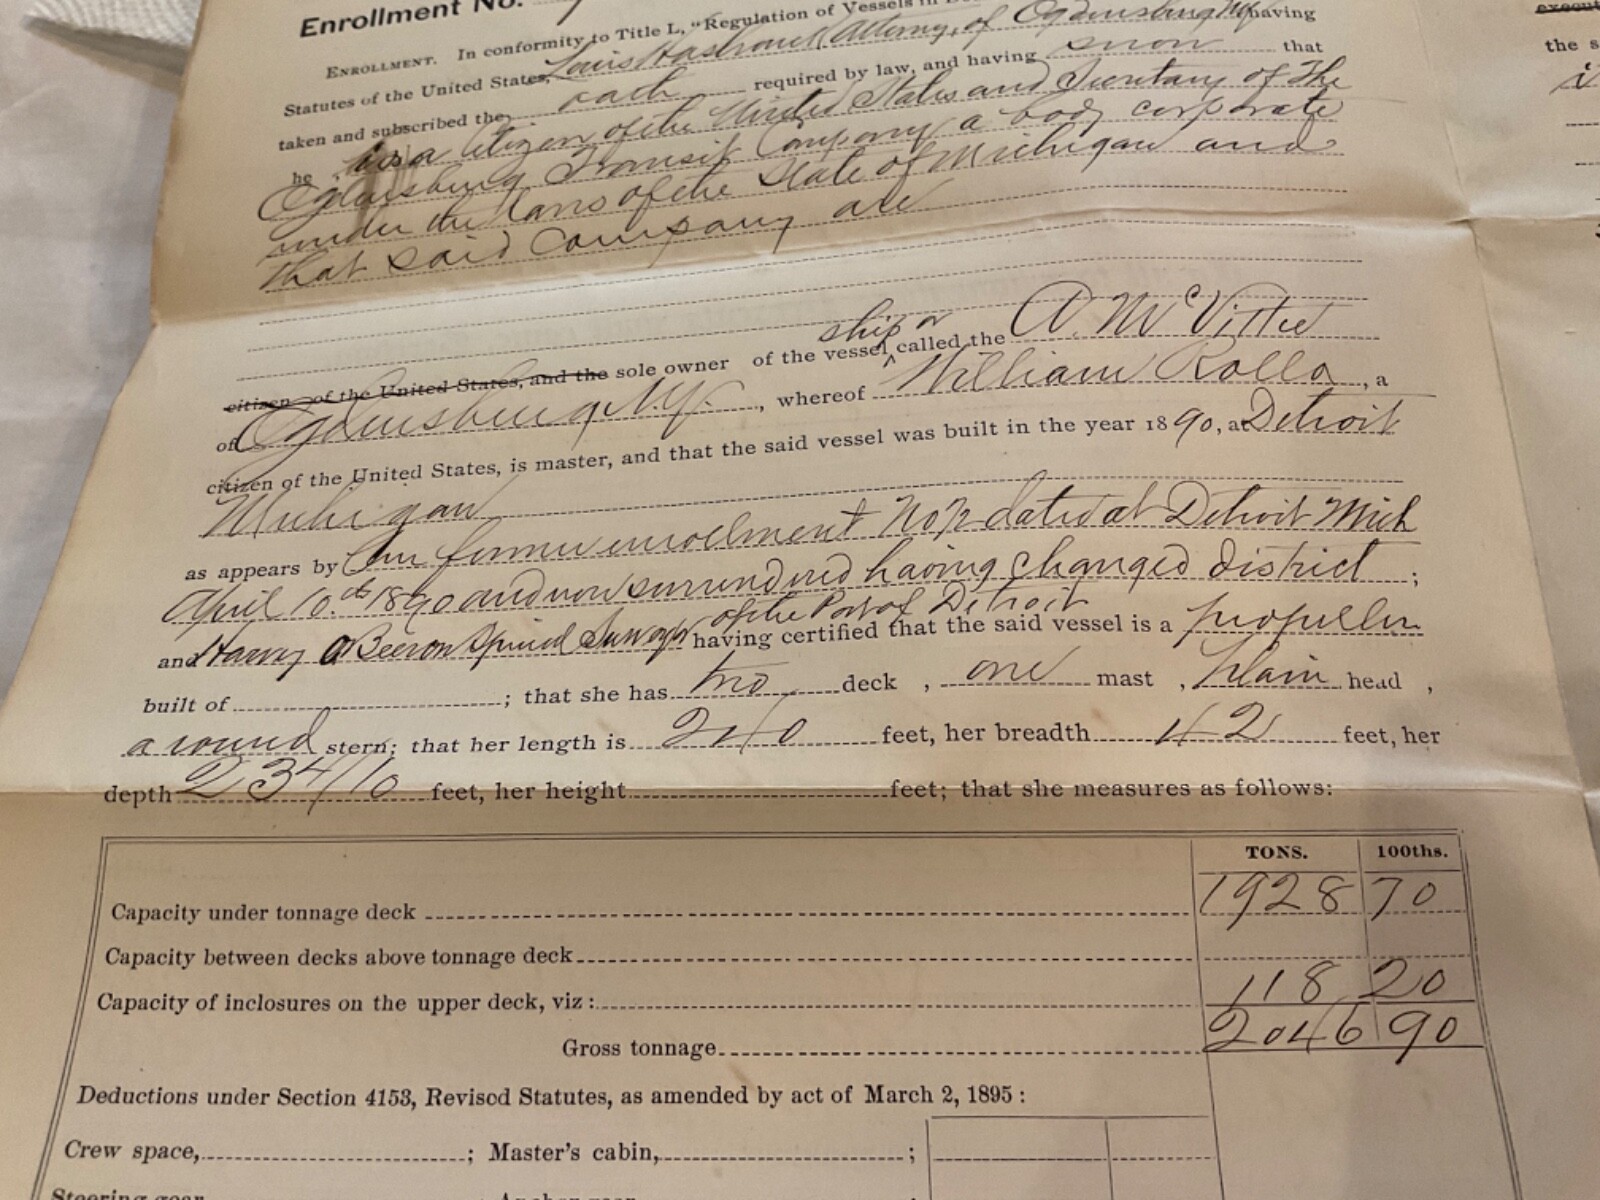 Enrollment No.
ENROLLMENT. In conformity to Title L, "Regulation of Vessels in
Statutes of the United States, Louis Hasbrouck Attorney, of Ogdensburg NY having
taken and subscribed the oath required by law, and having sworn that
he is a Citizen of the United States and Secretary of The
Ogdensburg Transit Company a body corporate
under the laws of the State of Michigan and
that said Company are
citizen of the United States, and the sole owner of the vessel ship or called the A. McVittie
of Ogdensburg N.Y. , whereof William Rolla , a
citizen of the United States, is master, and that the said vessel was built in the year 1890, at Detroit
Michigan
as appears by former enrollment No dated at Detroit Mich
April 10th 1890 and now surrendered having changed district ;
and Harvey Special Surveyor of the Port of Detroit having certified that the said vessel is a propeller
built of ; that she has two deck , one mast , plain head ,
a round stern; that her length is 240 feet, her breadth 42 feet, her
depth 23 4/10 feet, her height feet; that she measures as follows:
TONS. 100ths.
Capacity under tonnage deck 1928 70
Capacity between decks above tonnage deck
Capacity of inclosures on the upper deck, viz: 118 20
Gross tonnage 2046 90
Deductions under Section 4153, Revised Statutes, as amended by act of March 2, 1895 :
Crew space, ; Master's cabin, ;
Steering gear